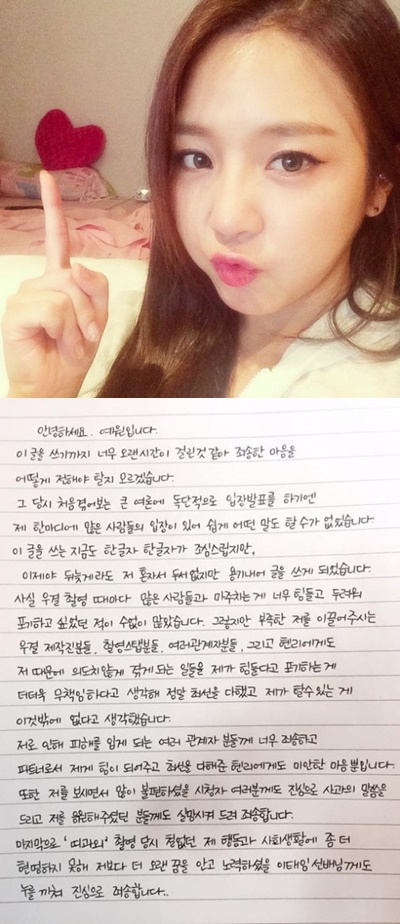 안녕하세요. 예원입니다.
이 글을 쓰기까지 너무 오랜시간이 걸린것같아 죄송한 마음을
어떻게 전해야 할지 모르겠습니다.
그 당시 처음겪어보는 큰 여론에 독단적으로 입장발표를 하기엔
제 한마디에 많은 사람들의 입장이 있어 쉽게 어떤 말도 할 수가 없었습니다
이 글을 쓰는 지금도 한글자 한글자가 조심스럽지만,
이제야 뒤늦게라도 저 혼자서 두서없지만 용기내어 글을 쓰게 되었습니다.
사실 우결 촬영 때마다 많은 사람들과 마주치는 게 너무 힘들고 두려워
포기하고 싶었던 적이 수없이 많았습니다. 그렇지만 부족한 저를 이끌어주시는
우결 제작진분들, 촬영스텝분들, 여러관계자분들, 그리고 헨리에게도
저 때문에 의도치않게 겪게 되는 일들을 제가 힘들다고 포기하는게
더더욱 무책임하다고 생각해 정말 최선을 다했고 제가 할수있는 게
이것밖에 없다고 생각했습니다.
저로 인해 피해를 입게 되는 여러 관계자 분들께 너무 죄송하고
파트너로서 제게 힘이 되어주고 최선을 다해준 헨리에게도 미안한 마음뿐입니다.
또한 저를 보시면서 많이 불편하셨을 시청자 여러분께도 진심으로 사과의 말씀을
드리고 저를 응원해주셨던 분들께도 실망시켜 드려 죄송합니다.
마지막으로 '띠과외' 촬영 당시 철없던 제 행동과 사회생활에 좀 더
현명하지 못해 저보다 더 오랜 꿈을 안고 노력하셨을 이태임 선배님께도
누를 끼쳐 진심으로 죄송합니다..